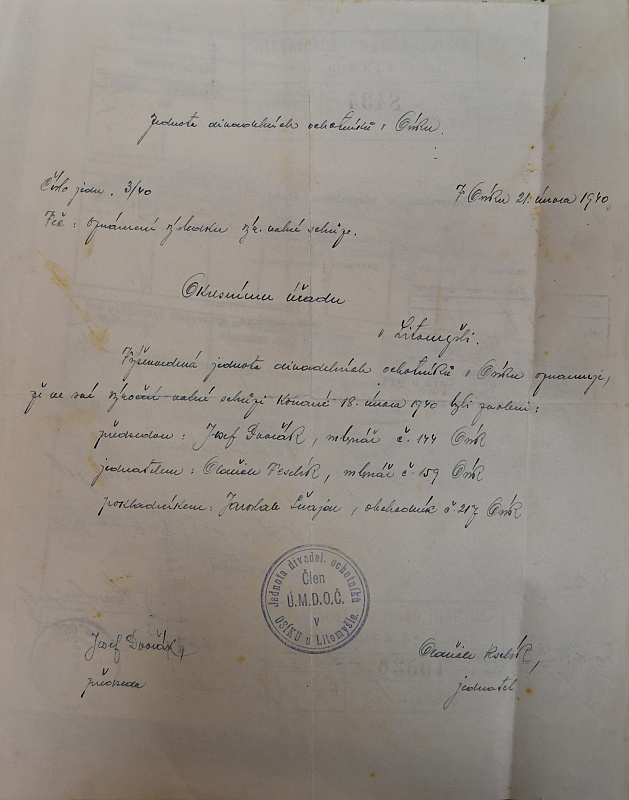 Jednota divadelních ochotníků v Osíku.
Číslo jedn. 3/40
V Osíku 21. února 1940
Věc: Oznámení výsledku výr. valné schůze.
Okresnímu úřadu
v Litomyšli.
Výšeuvedená jednota divadelních ochotníků v Osíku oznamuje,
že ve své výroční valné schůzi konané 18. února 1940 byli zvoleni:
předsedou: Josef Dvořák, mlynář č. 144 Osík
jednatelem: Oldřich Kselík, mlynář č. 159 Osík
pokladníkem: Jaroslav, obchodník č. 217 Osík
Jednota divadel. ochotníků
Člen
Ú.M.D.O.Č.
v
OSÍKU u Litomyšle
Josef Dvořák
předseda
Oldřich Kselík,
jednatel